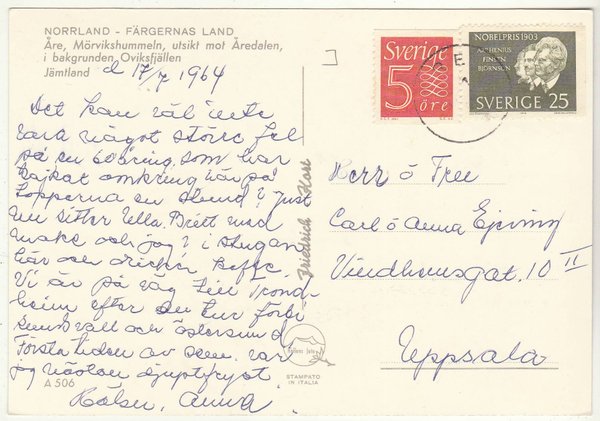 NORRLAND - FÄRGERNAS LAND
Åre, Mörvikshummeln, utsikt mot Åredalen,
i bakgrunden Oviksfjällen
Jämtland
d 17/7 1964
Det kan väl inte
vara något större fel
på en 60 åring, som har
omkring här på
topparna en stund? Just
nu sitter Ulla, Britt med
make och jag i stugan
här och dricker kaffe.
Vi är på väg till Trond-
heim efter en tur förbi
Sundsvall och Östersund
Första tiden av sem. var
jag nästan djupfryst.
Hälsn. Anna
A 506
Friedrich Host
STAMPATO
IN ITALIA
Sverige
5
öre
NOBELPRIS 1903
ARRHENIUS
FINSEN
BJÖRNSON
SVERIGE 25
Herr o Fru
Carl o Anna Ejving
Vindhemsgat. 10 II
Uppsala